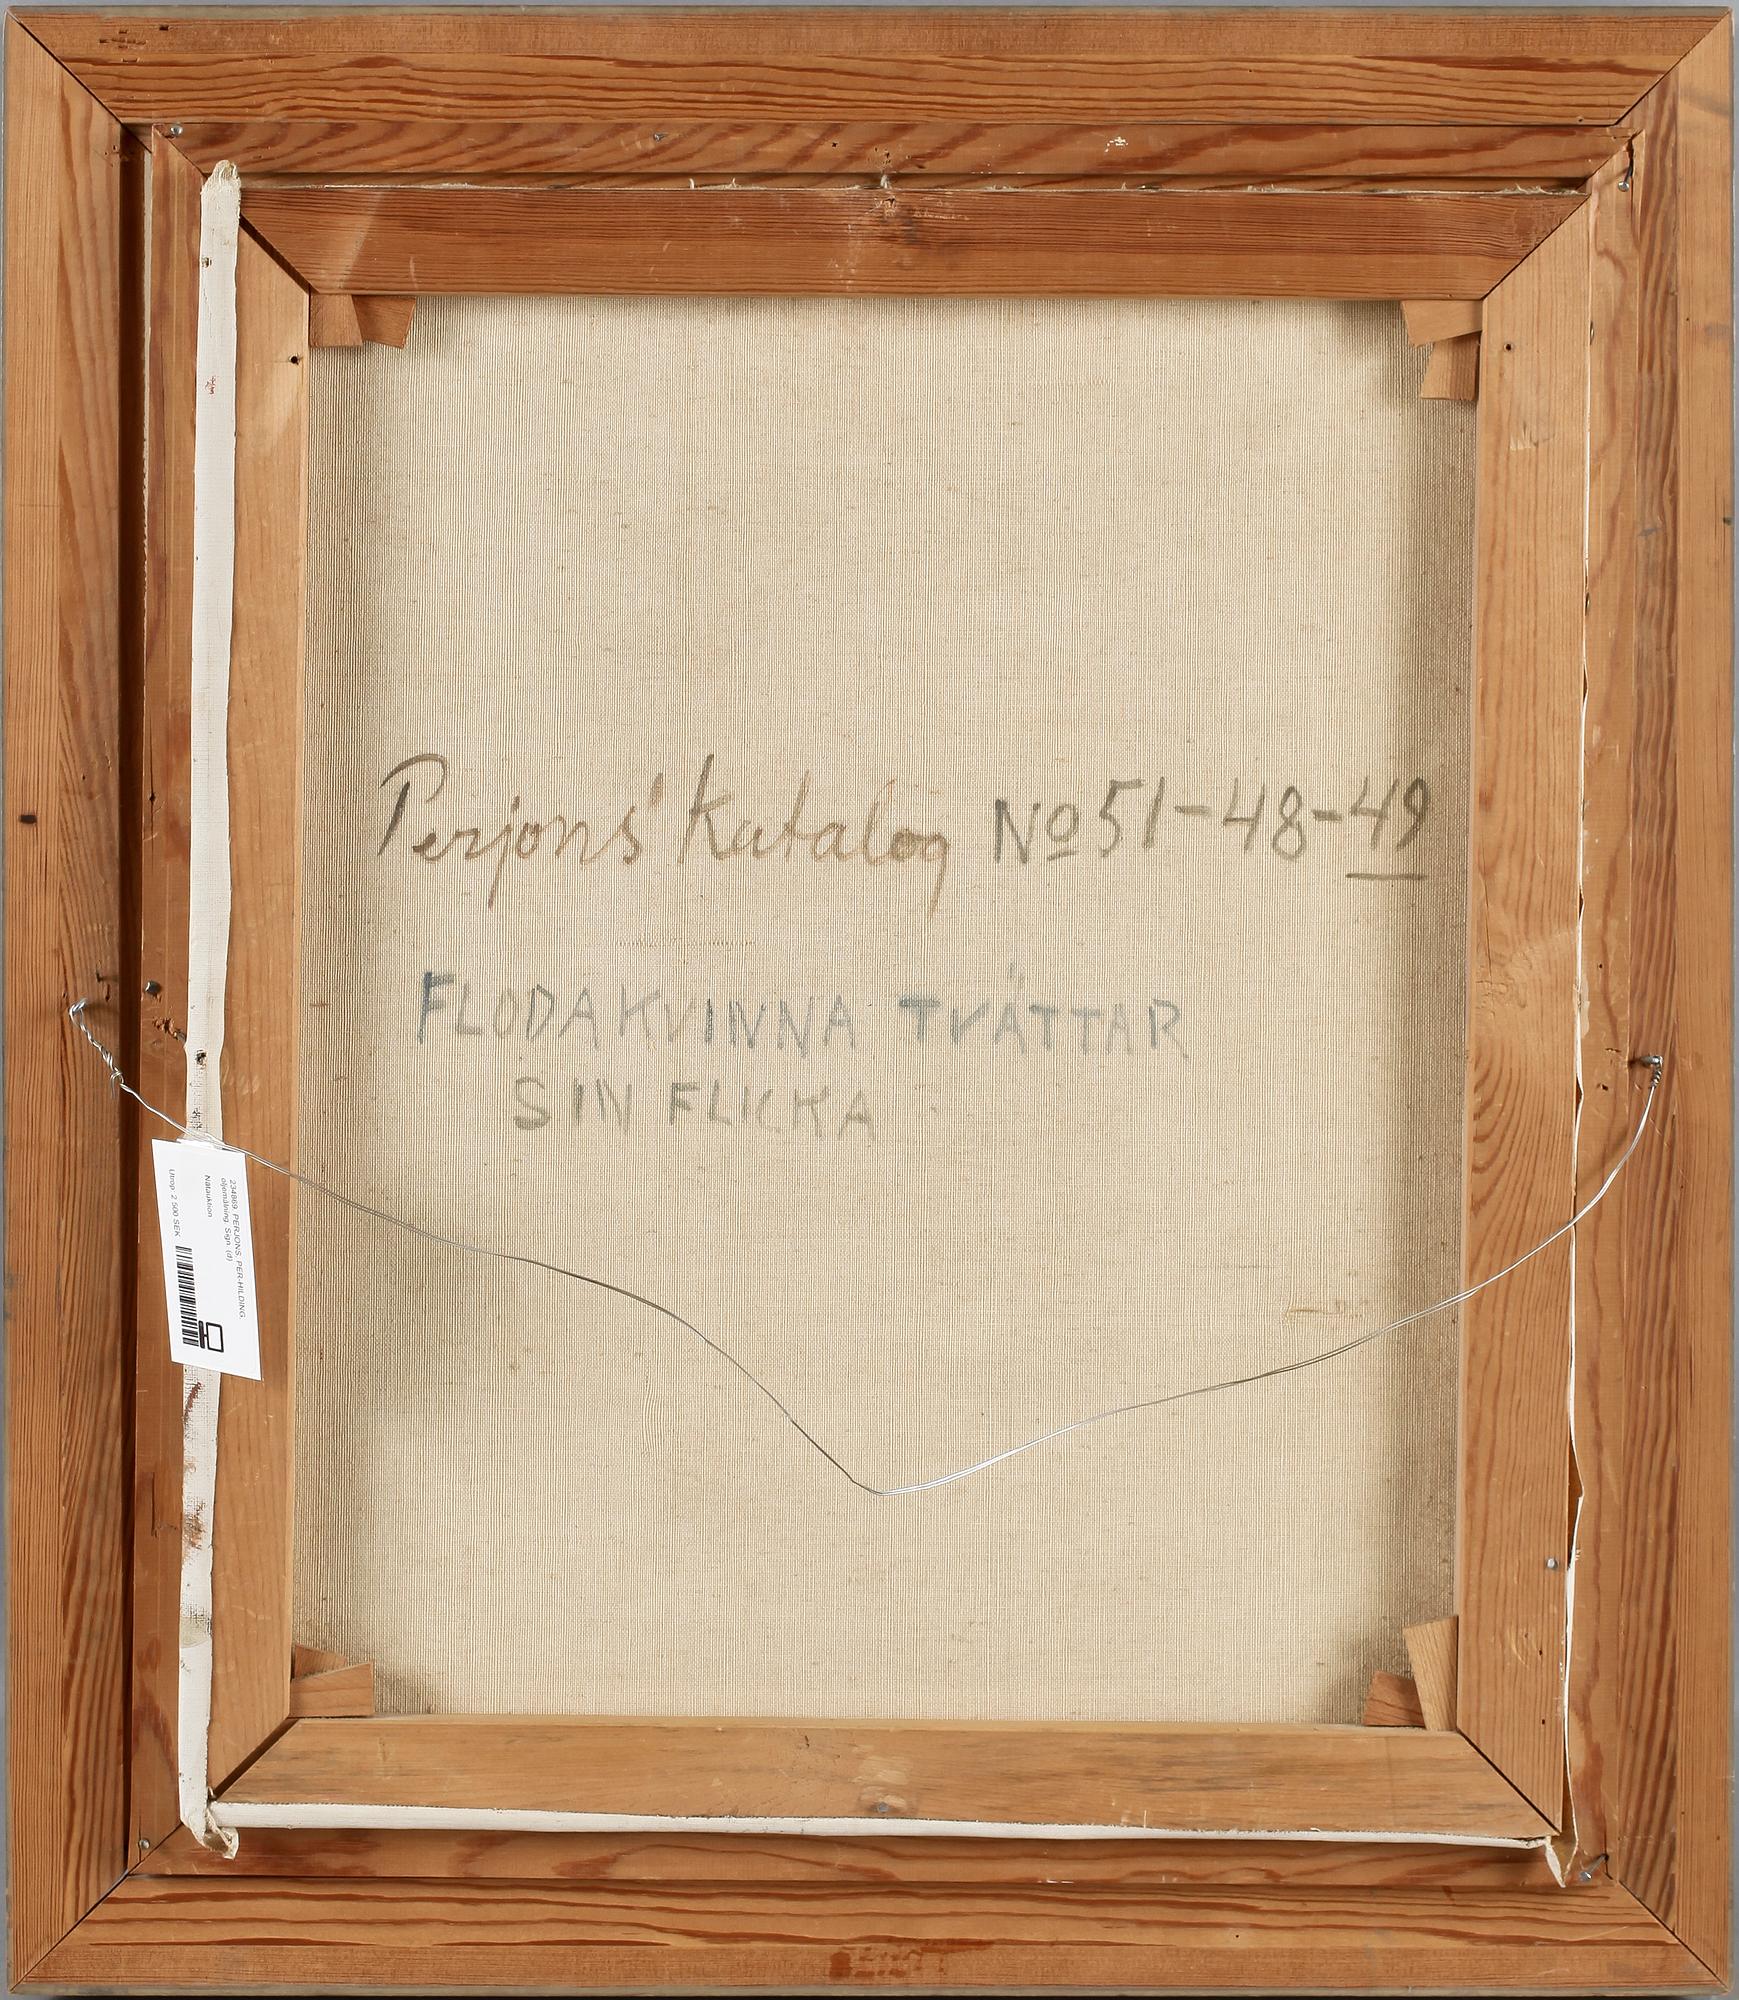 Perjons' Katalog No 51-48-49
FLODAKVINNA TVÄTTAR
SIN FLICKA
234869. PERJONS, PER-HILDING.
oljemålning. Sign. (d)
Nätauktion
Utrop. 2 500 SEK